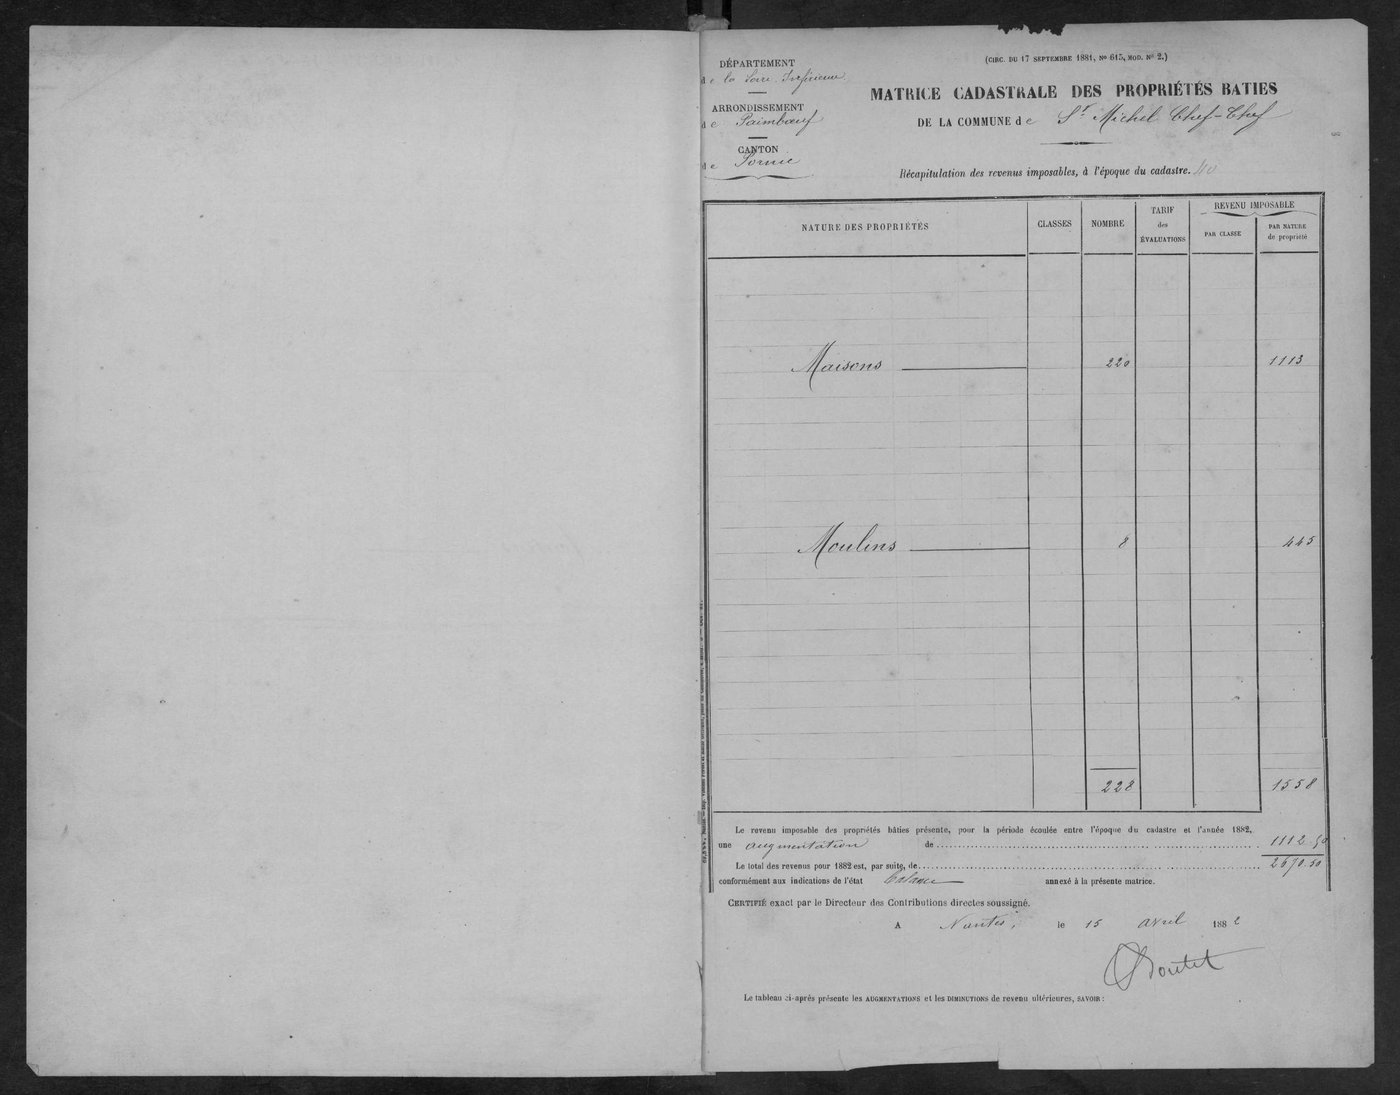 DÉPARTEMENT
de la Loire Inférieure
ARRONDISSEMENT
de Paimbœuf
CANTON
de Pornic
(CIRC. DU 17 SEPTEMBRE 1881, No 615, MOD. No 2.)
MATRICE CADASTRALE DES PROPRIÉTÉS BATIES
DE LA COMMUNE de St Michel Chef-Chef
Récapitulation des revenus imposables, à l'époque du cadastre.
NATURE DES PROPRIÉTÉS CLASSES NOMBRE TARIF des ÉVALUATIONS REVENU IMPOSABLE PAR CLASSE PAR NATURE de propriété
Maisons 220 1113
Moulins 8 445
228 1558
Le revenu imposable des propriétés bâties présente, pour la période écoulée entre l'époque du cadastre et l'année 1882,
une augmentation de 1112.50
Le total des revenus pour 1882 est, par suite, de 2670.50
conformément aux indications de l'état balance annexé à la présente matrice.
CERTIFIÉ exact par le Directeur des Contributions directes soussigné.
A Nantes, le 15 avril 1882
Le tableau ci-après présente les AUGMENTATIONS et les DIMINUTIONS de revenu ultérieures, SAVOIR :